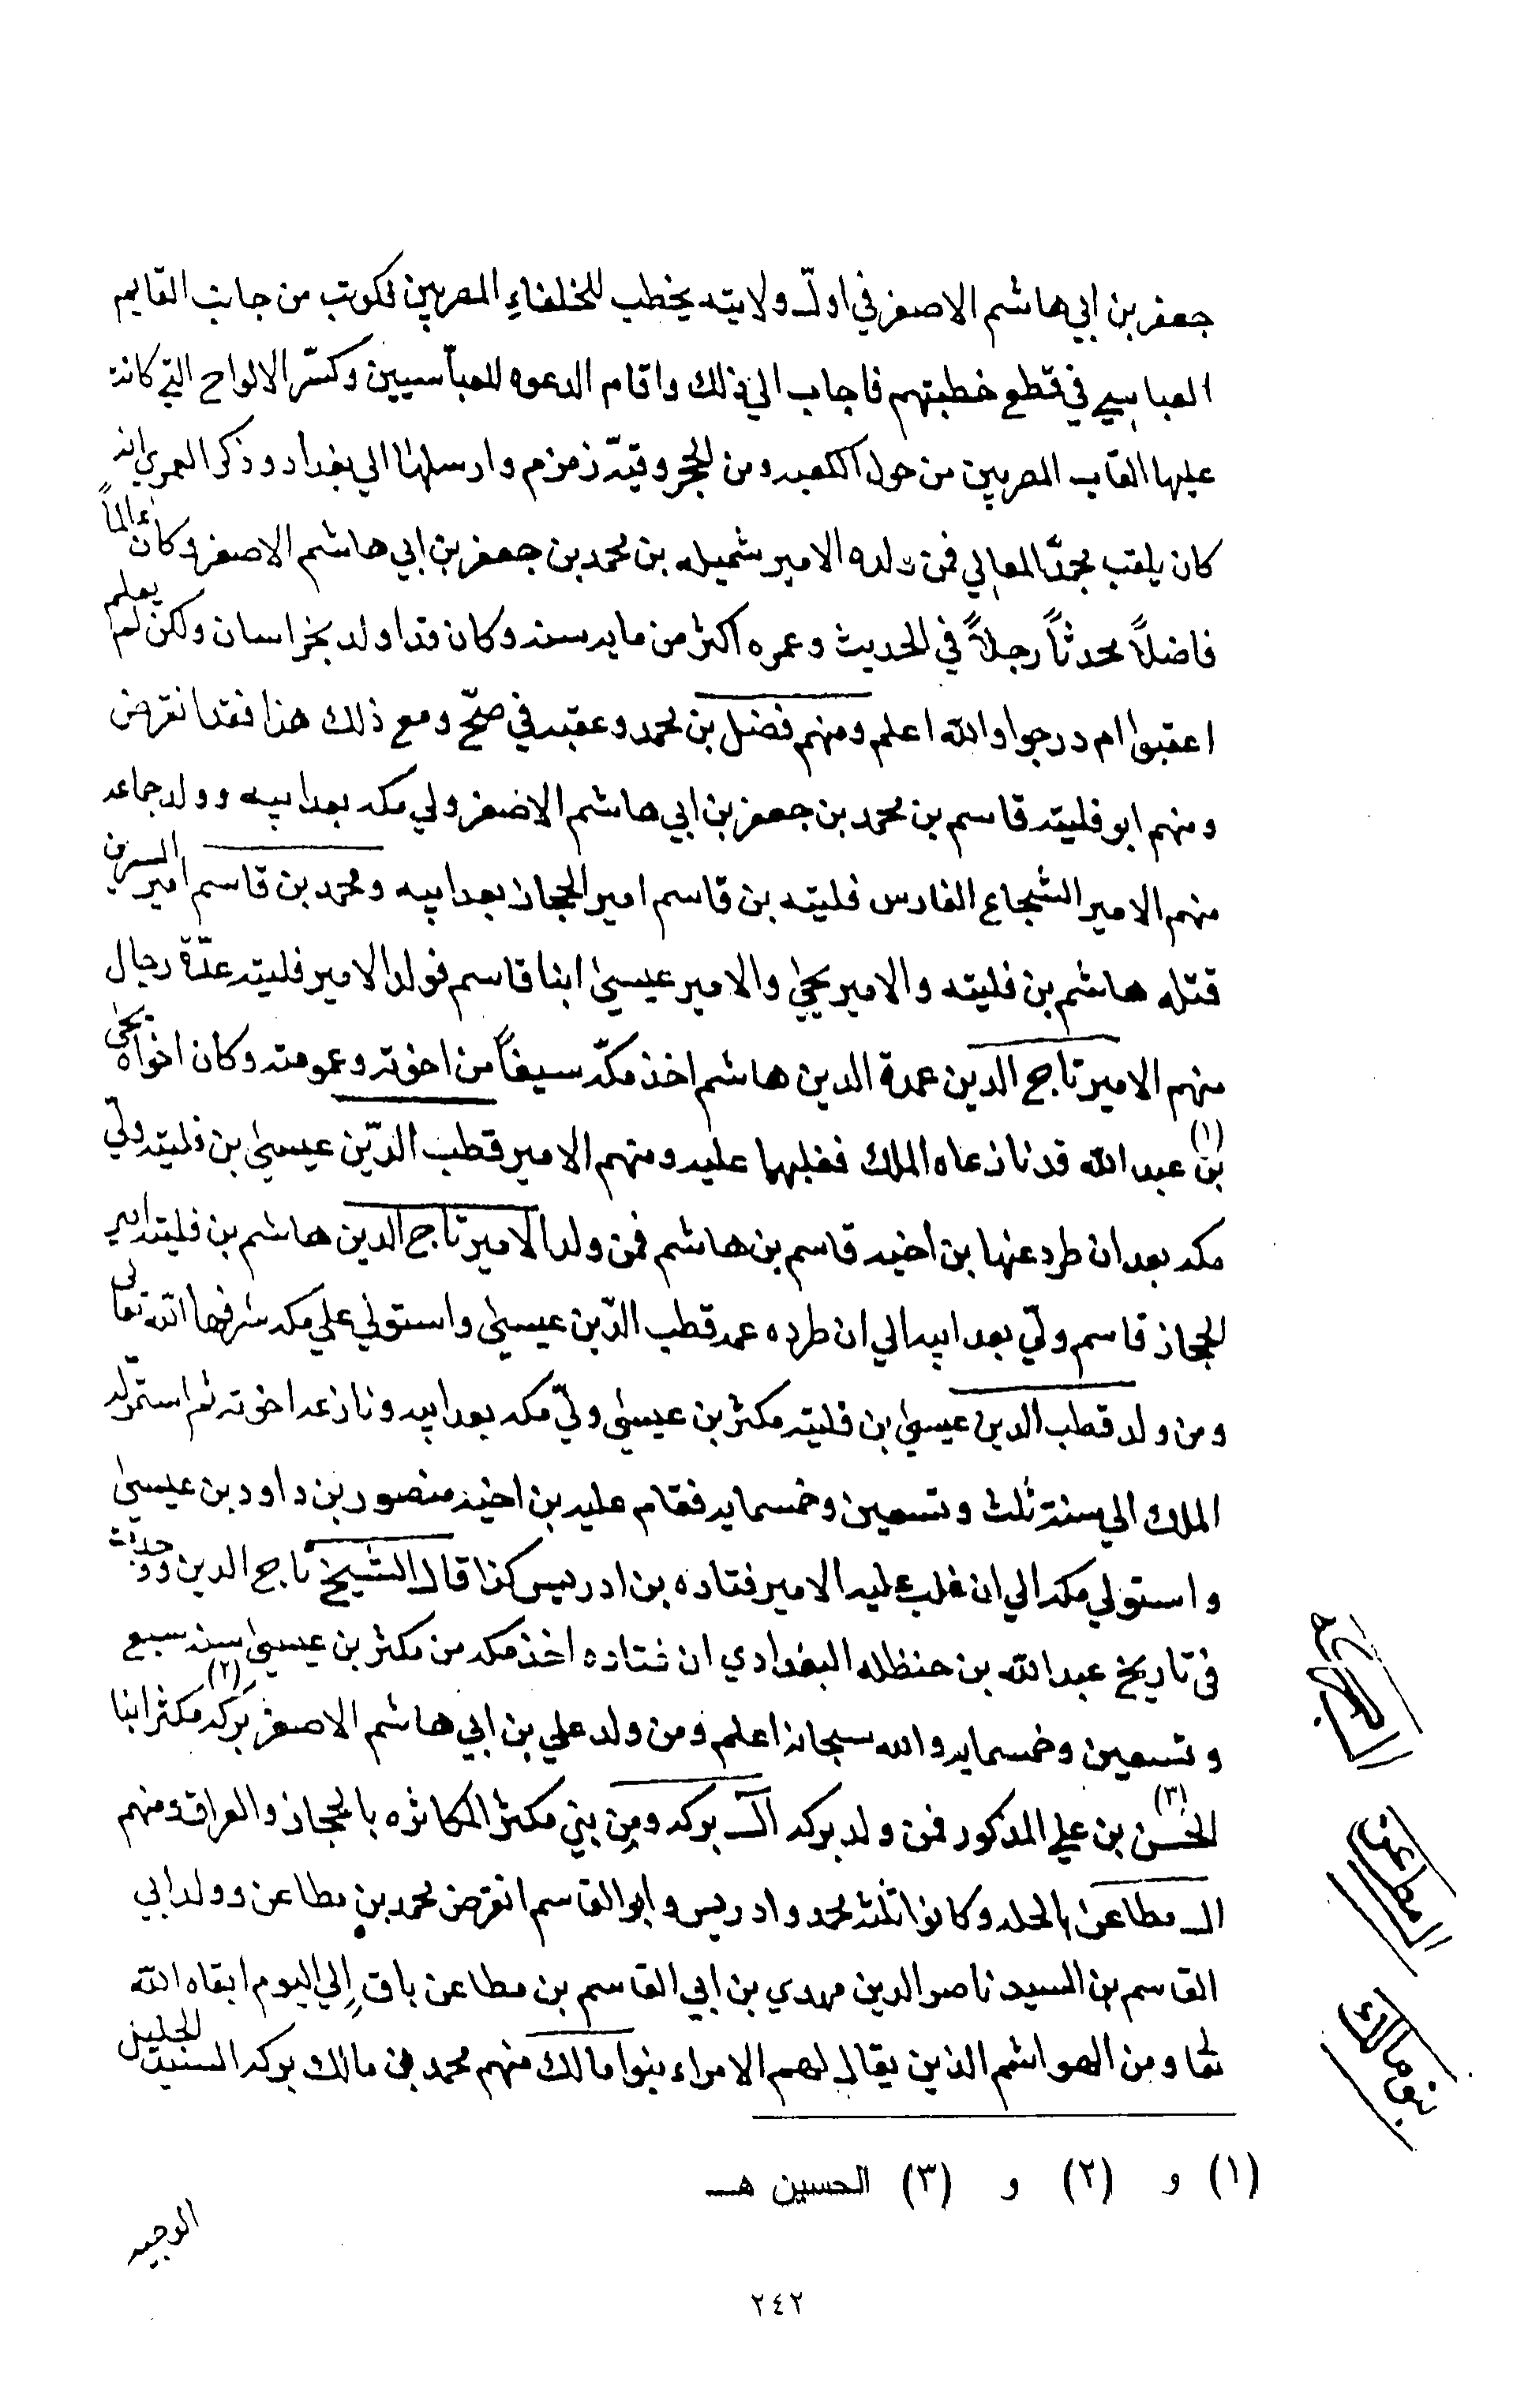 جعفر بن ابي هاشم الاصغر في اول ولايته يخطب للخلفاء المصريين فكوتب من جانب القايم
العباسي في قطع خطبتهم فاجاب الي ذلك واقام الدعوه للعباسيين وكسّر الالواح التي كانت
عليها القاب المصريين من حول الكعبه ومن الحجر وقبّة زمزم وارسلها الي بغداد وذكر العمري انه
كان يلقب بمجد المعالي فمن ولده الامير شميله بن محمد بن جعفر بن ابي هاشم الاصغر وكان عالماً
فاضلاً محدثاً رجلاً في الحديث وعمره اكثر من مايه سنه وكان قد اولد بخراسان ولكن لم يعلم
اعقبوا ام درجوا والله اعلم ومنهم فضل بن محمد وعقبه في صحّ ومع ذلك هذا فقد انقرض
ومنهم ابو فليته قاسم بن محمد بن جعفر بن ابي هاشم الاصغر ولي مكه بعد ابيه وولد جماعه
منهم الامير الشجاع الفارس فليته بن قاسم امير الحجاز بعد ابيه ومحمد بن قاسم امير السرين
قتله هاشم بن فليته والامير يحيٰ والامير عيسيٰ ابنا قاسم فولد الامير فليته عدّة رجال
منهم الامير تاج الدين عمدة الدين هاشم اخذ مكّه سيفاً من اخوته وعمومته وكان اخواه يحيٰ
(١) بن عبد الله قد نازعاه الملك فغلبهما عليه ومنهم الامير قطب الدّين عيسيٰ بن فليته وليّ
مكه بعد ان طرد عنها بن اخيه قاسم بن هاشم فمن ولد الامير تاج الدين هاشم بن فليته امير
الحجاز قاسم وليّ بعد ابيه الي ان طرده عمه قطب الدّين عيسيٰ واستولي علي مكه شرفها الله تعالي
ومن ولد قطب الدين عيسيٰ بن فليته مكثر بن عيسيٰ وليّ مكه بعد ابيه ونازعه اخوته ثم استمرّ له
الملك الي سنة ثلث وتسعين وخمسمايه فقام عليه بن اخيه منصور بن داود بن عيسيٰ
واستولي مكه الي ان غلب عليه الامير قتاده بن ادريس كذا قال الشيخ تاج الدين ووجدت
في تاريخ عبد الله بن حنظله البغدادي ان قتاده اخذ مكه من مكثر بن عيسيٰ سنه سبع
وتسعين وخمسمايه والله سبحانه اعلم ومن ولد علي بن ابي هاشم الاصغر بركه (٢) مكثر ابنا
الحسن (٣) بن علي المذكور فمن ولد بركه آل بركه ومن بني مكثر المكاثره بالحجاز والعراق ومنهم
ال مطاعن بالحله وكانوا ثلثه محمد وادريس وابو القاسم انقرض محمد بن مطاعن وولد ابي
القاسم بن السيد ناصر الدين مهدي بن ابي القاسم بن مطاعن باق إلي اليوم ابقاه الله
تعا ومن الهواشم الذين يقال لهم الامراء بنوا مالك منهم محمد بن مالك بركه السيد الجليل
ال بركه
ال مطاعن
بنو مالك
(١) و (٢) و (٣) الحسين هـ
الوجيه
٢٤٢